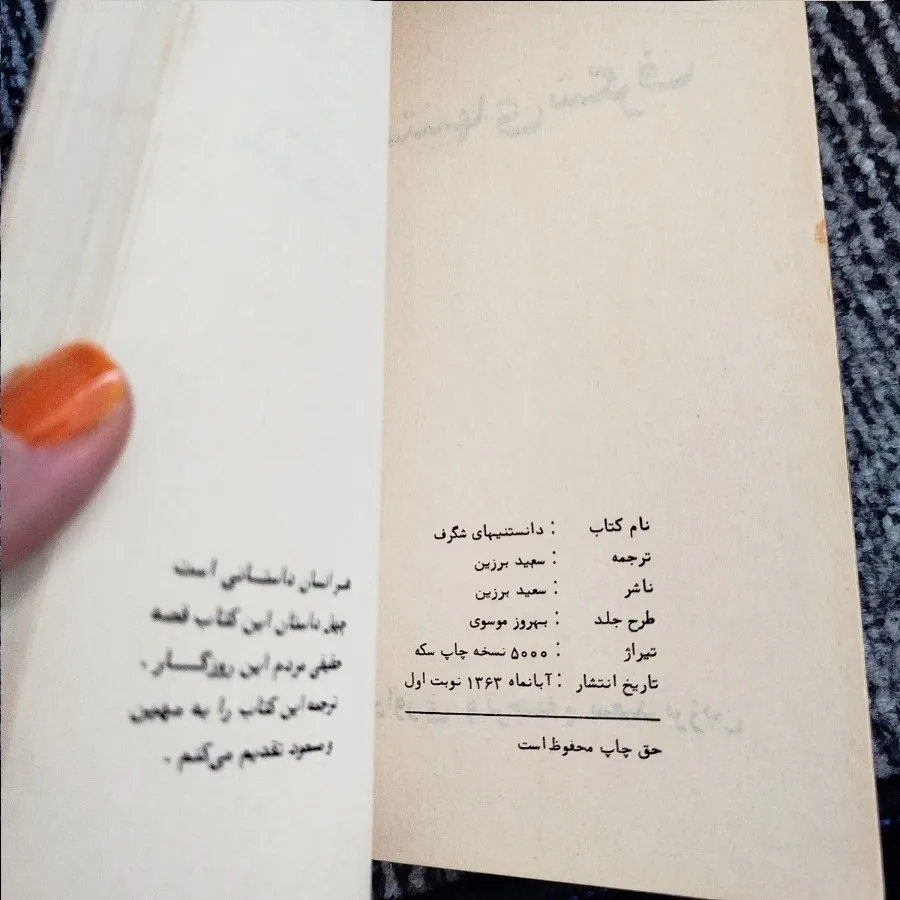 نام کتاب : دانستنیهای شگرف
ترجمه : سعید برزین
ناشر : سعید برزین
طرح جلد : بهروز موسوی
تیراژ : ۵۰۰۰ نسخه چاپ سکه
تاریخ انتشار : آبانماه ۱۳۶۳ نوبت اول
حق چاپ محفوظ است
هر انسان داستانی است
چهل داستان این کتاب قصه
مردم این روزگار .
ترجمه این کتاب را به مهین
و سعود تقدیم می‌کنم .